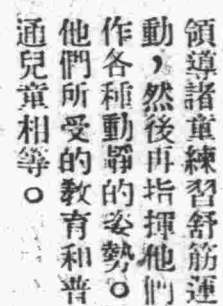 領導諸童練習舒筋運
動，然後再指揮他們
作各種動靜的姿勢。
他們所受的教育和普
通兒童相等。